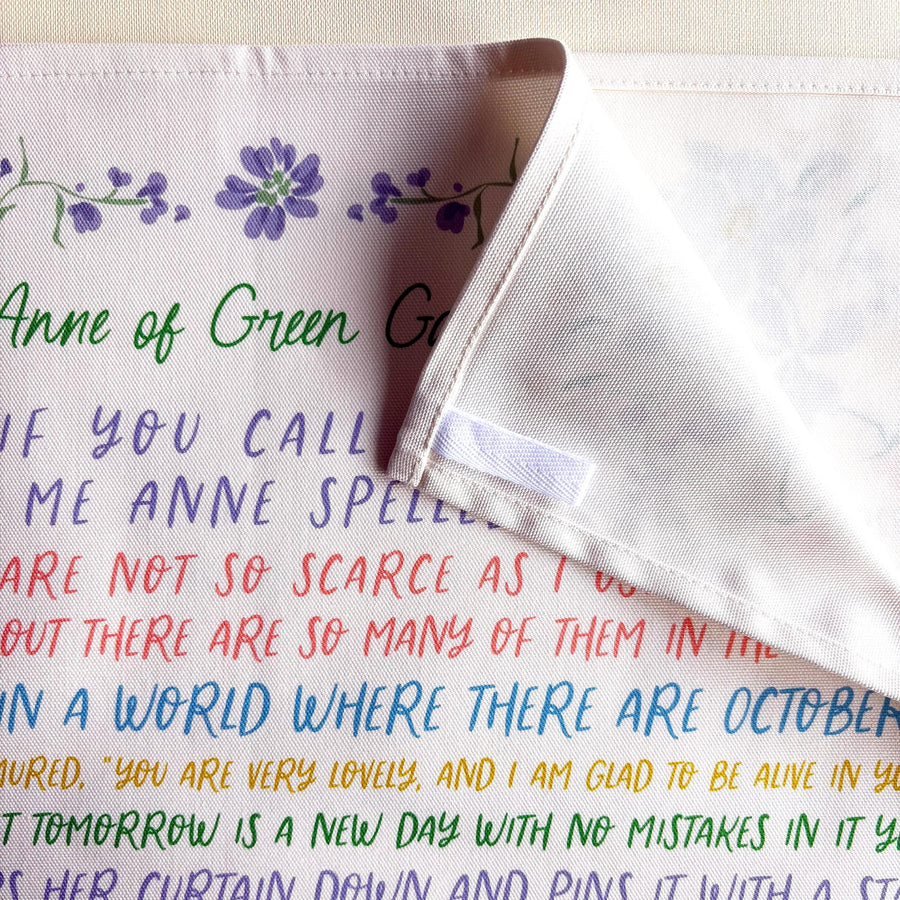 Anne of Green Ga
IF YOU CALL
ME ANNE SPELLED
ARE NOT SO SCARCE AS I US
OUT THERE ARE SO MANY OF THEM IN THE
IN A WORLD WHERE THERE ARE OCTOBER
MURED, "YOU ARE VERY LOVELY, AND I AM GLAD TO BE ALIVE IN YO
T TOMORROW IS A NEW DAY WITH NO MISTAKES IN IT YE
S HER CURTAIN DOWN AND PINS IT WITH A STA